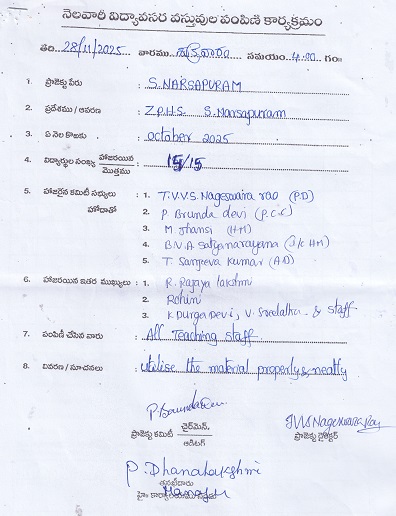 నెలవారీ విద్యావసర వస్తువుల పంపిణీ కార్యక్రమం
తేది. 28/11/2025 వారము శుక్రవారం సమయం. 4:20 గం॥
1. ప్రాజెక్టు పేరు : S. NARSAPURAM
2. ప్రదేశము / ఆవరణ : Z.P.H.S. S. Narsapuram
3. ఏ నెల కొఱకు : october 2025
4. విద్యార్థుల సంఖ్య హాజరయిన / మొత్తము : 15/15
5. హాజరైన కమిటీ సభ్యులు హోదాతో : 1. T.V.V.S. Nageswara rao (P.D)
2. P Brunda devi (P.C.C)
3. M Jhansi (HM)
4. B.V.A Satyanarayana (I/C HM)
5. T. Sanjeeva Kumar (A.D)
6. హాజరయిన ఇతర ముఖ్యులు : 1. R. Rajaya lakshmi
2. Rohini
3. K Durga Devi, V. Sreelatha & staff
7. పంపిణీ చేసిన వారు : All Teaching staff.
8. వివరణ / సూచనలు : utilise the material properly & neatly
ప్రాజెక్టు కమిటీ చైర్‌మెన్. / ఆడిటర్
TVVS Nageswara Rao
ప్రాజెక్టు డైరెక్టర్
P. Dhanalakshmi
Manager